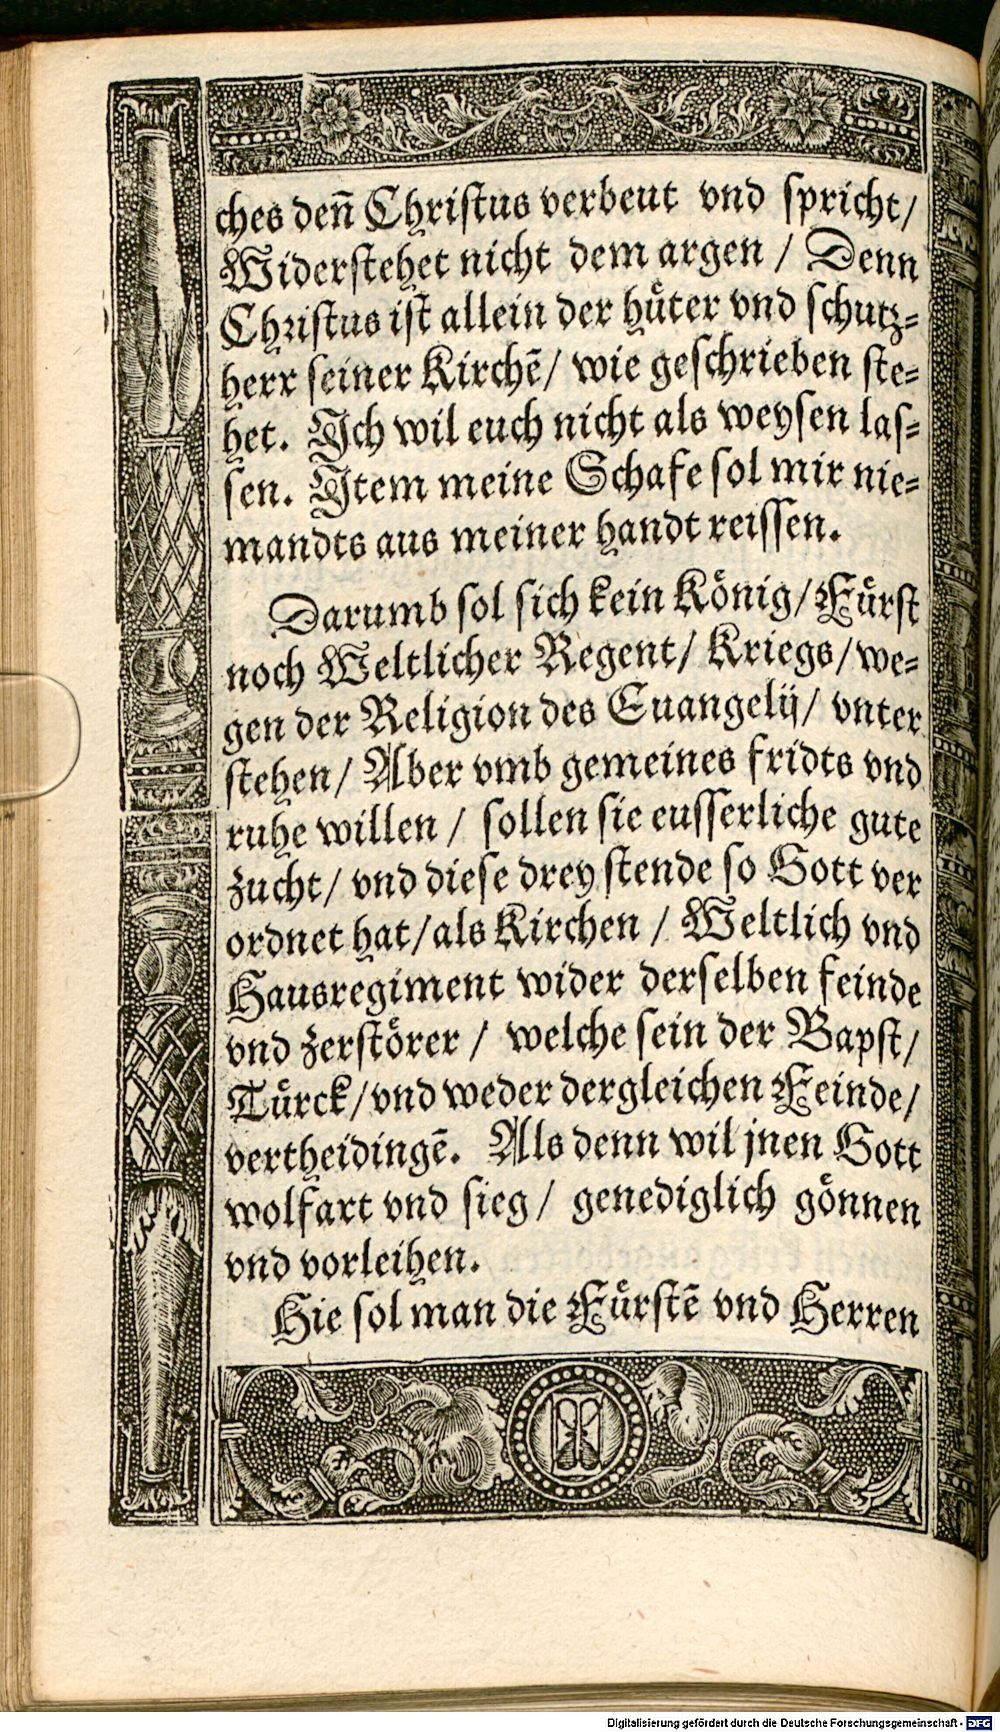 ches deñ Christus verbeut vnd spricht/
Widerstehet nicht dem argen / Denn
Christus ist allein der huͤter vnd schutz⸗
herr seiner Kirchē/ wie geschrieben ste⸗
het. Jch wil euch nicht als weysen las⸗
sen. Jtem meine Schafe sol mir nie⸗
mandts aus meiner handt reissen.
Darumb sol sich kein Koͤnig/ Fuͤrst
noch Weltlicher Regent/ Kriegs/ we⸗
gen der Religion des Euangelij/ vnter
stehen/ Aber vmb gemeines fridts vnd
ruhe willen / sollen sie eusserliche gute
zucht/ vnd diese drey stende so Gott ver
ordnet hat/ als Kirchen / Weltlich vnd
Hausregiment wider derselben feinde
vnd zerstoͤrer / welche sein der Bapst/
Tuͤrck/ vnd weder dergleichen Feinde/
vertheidingē. Als denn wil jnen Gott
wolfart vnd sieg / genediglich goͤnnen
vnd vorleihen.
Hie sol man die Fuͤrstē vnd Herren
Digitalisierung gefördert durch die Deutsche Forschungsgemeinschaft - DFG